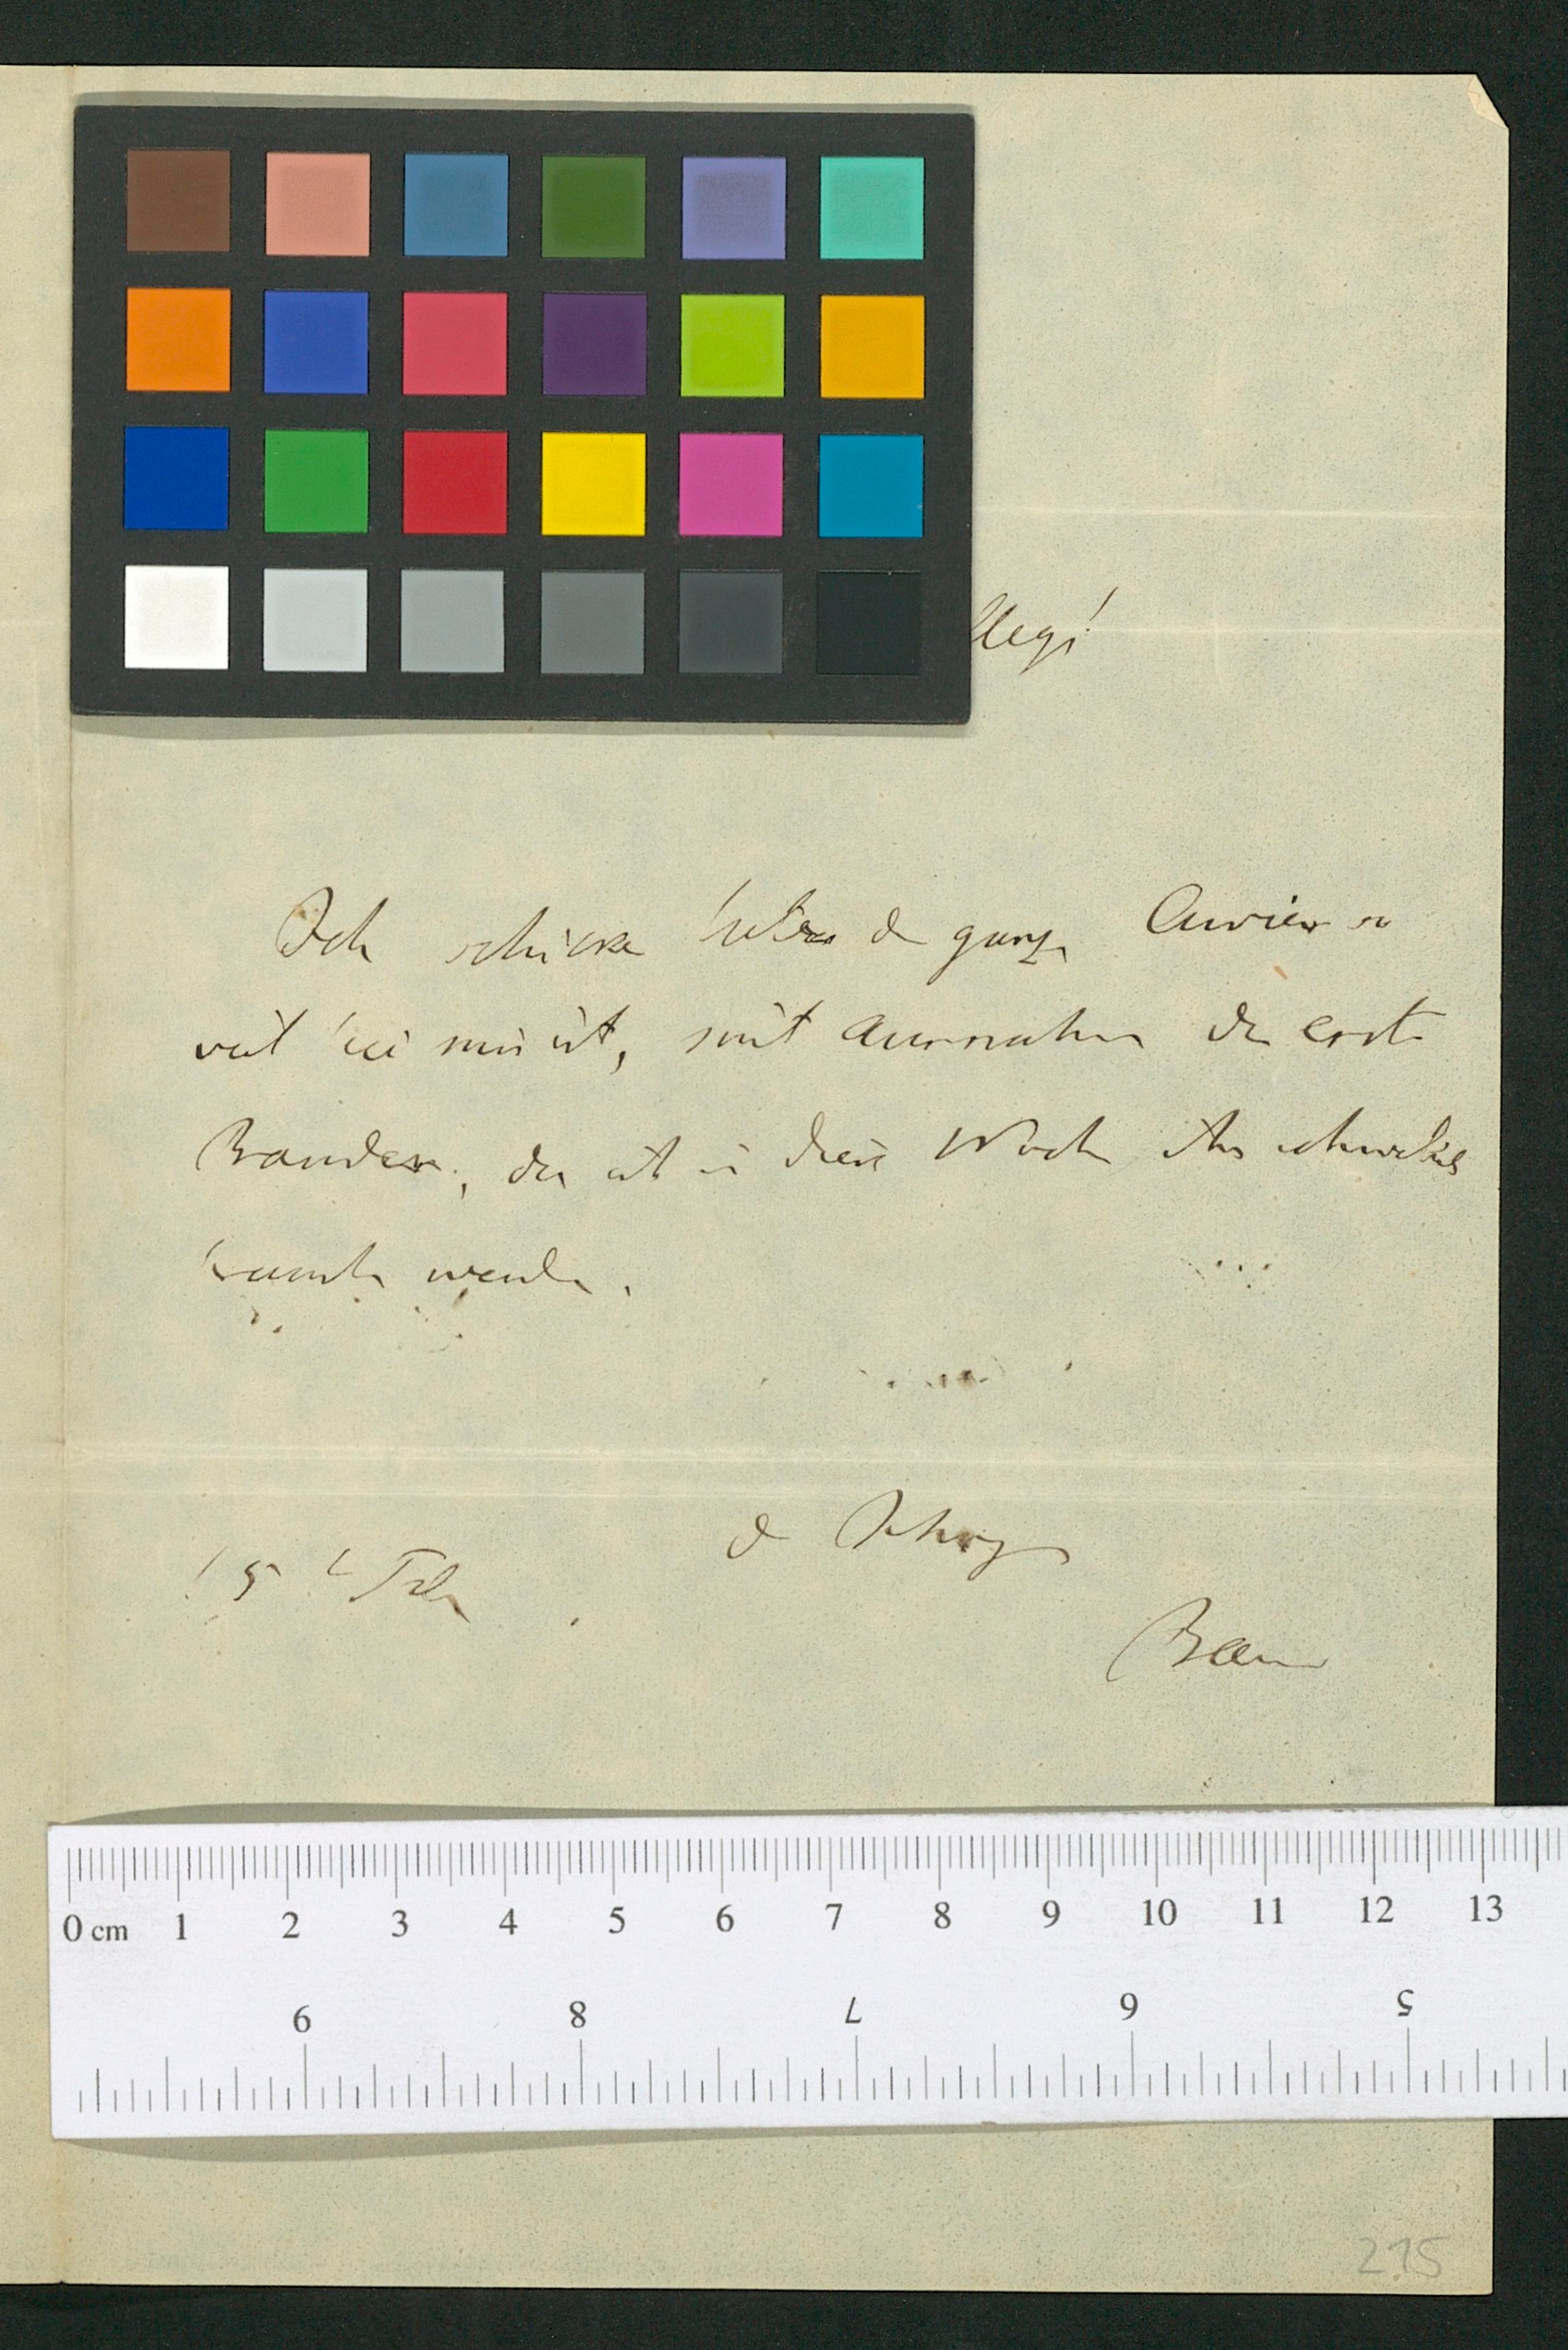 llege!
Ich schicke hiebei d ganzen Cuvier so
weit bei mir ist, mit Ausnahme des ersten
Bandes, der ist in dieser Woche
werden.
d Ihrige
15 Feb
Baer
0 cm 1 2 3 4 5 6 7 8 9 10 11 12 13
9 8 7 6 5
215